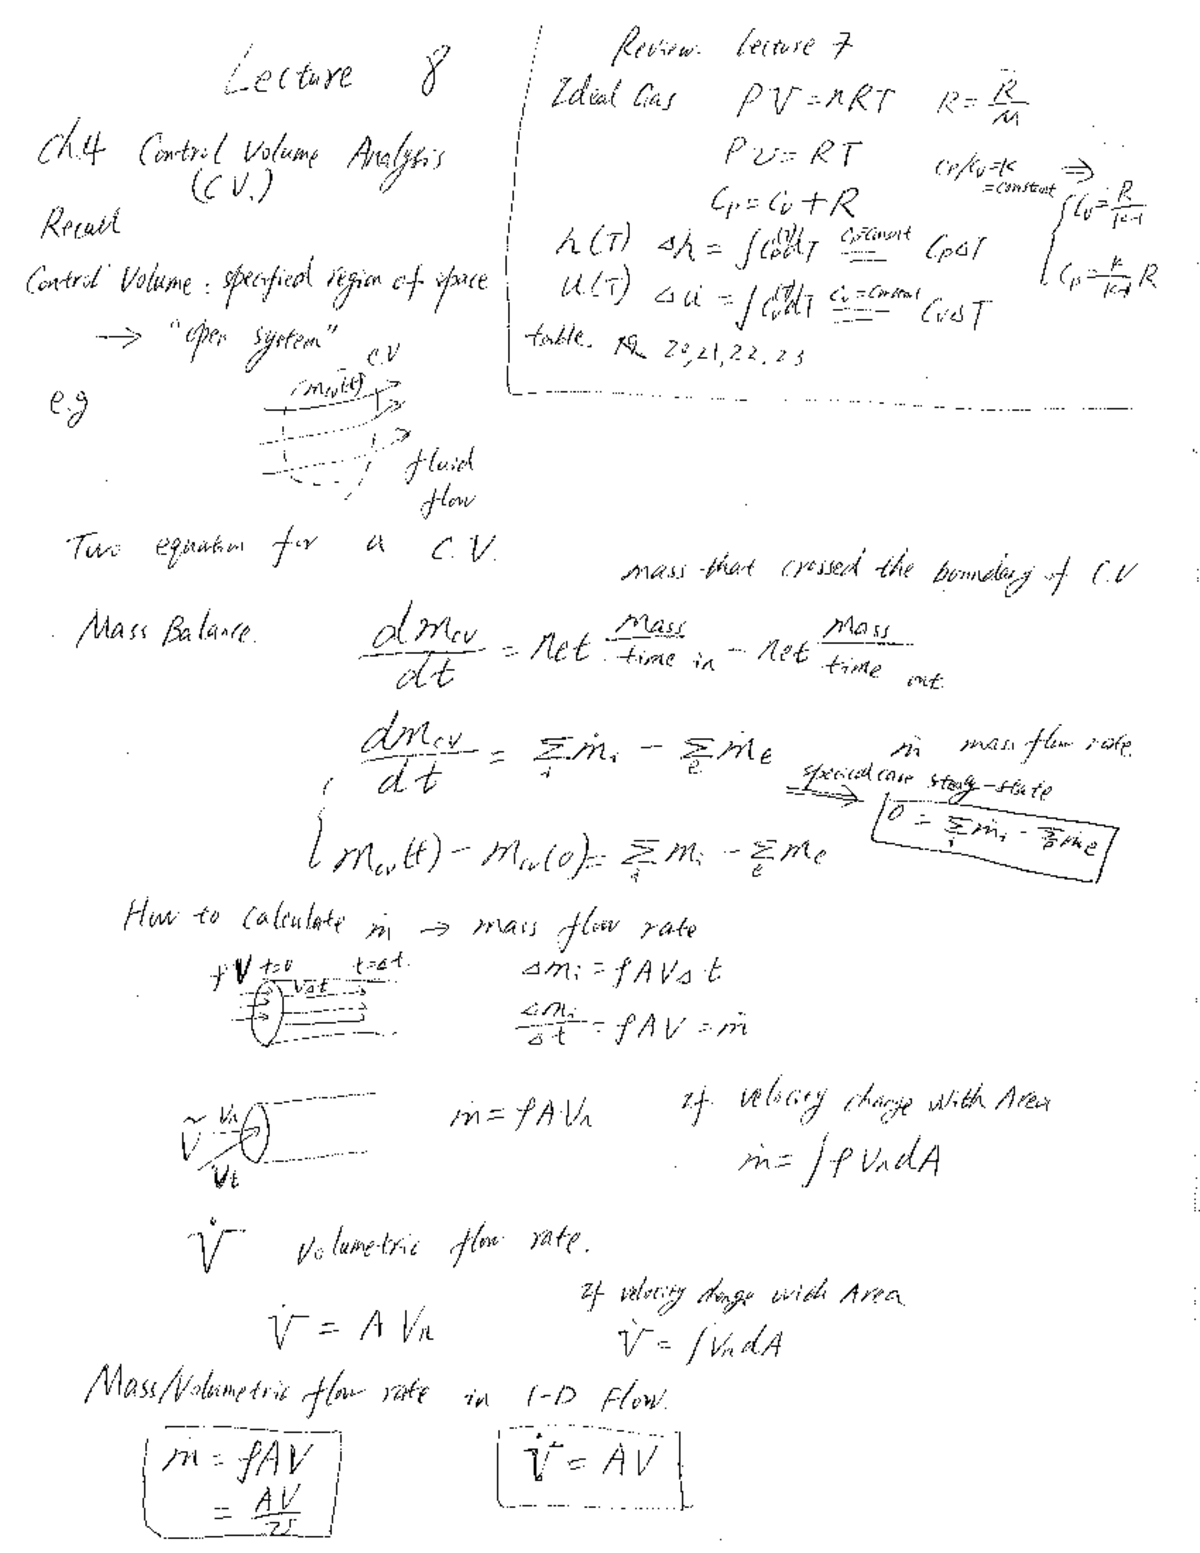 Lecture 8
Ch.4 Control Volume Analysis
(C V.)
Recall
Control Volume : specified region of space
→ "open system"
e.g
m_cv(t) C.V
fluid
flow
Review. Lecture 7
Ideal Gas PV = nRT R = R̄/M
Pv = RT
Cp/Cv = K = constant ⇒ { Cv = R/(k-1)
Cp = Cv + R
Cp = k/(k-1) R
h(T) Δh = ∫Cp(T)dT = Cp=Const CpΔT
u(T) Δu = ∫Cv(T)dT = Cv=Constant CvΔT
table. 20,21,22,23
Two equation for a C.V.
mass that crossed the boundary of C.V
Mass Balance. dm_cv/dt = net mass/time in - net mass/time out
dm_cv/dt = Σ_i ṁ_i - Σ_e ṁ_e ṁ mass flow rate.
special case steady-state
⇒ 0 = Σ_i ṁ_i - Σ_e ṁ_e
m_cv(t) - m_cv(0) = Σ_i m_i - Σ_e m_e
How to calculate ṁ → mass flow rate
ρ V t=0 t=Δt. VΔt
Δm_i = ρAVΔt
Δm_i/Δt = ρAV = ṁ
Ṽ Vn Vt
ṁ = ρA·Vn If velocity change with Area
ṁ = ∫ρVndA
V̇ volumetric flow rate.
If velocity change with Area
V̇ = A Vn V̇ = ∫VndA
Mass/Volumetric flow rate in 1-D Flow.
ṁ = ρAV V̇ = AV
= AV/v